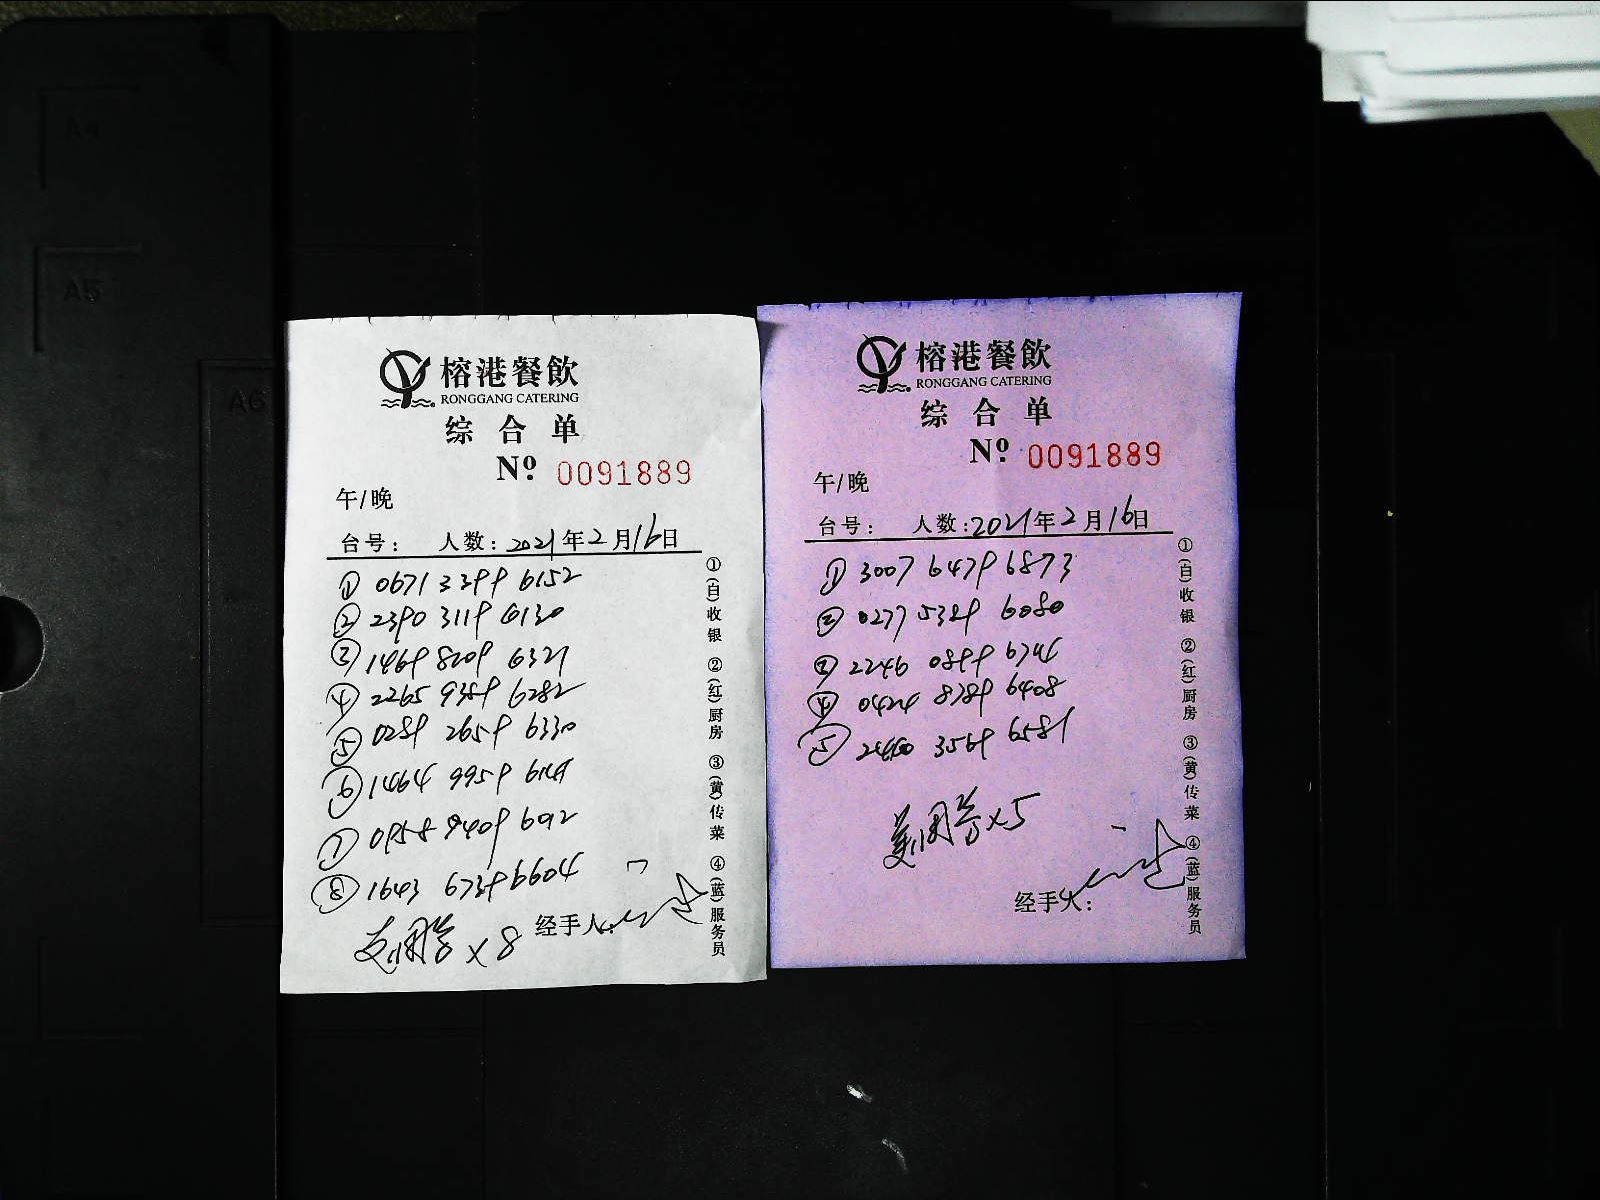 A4
A5
A6
榕港餐飲
RONGGANG CATERING
综合单
Nº 0091889
午/晚
台号： 人数：2021年2月16日
① 0671 3399 6152
② 2390 3119 6130
③ 1469 8209 6321
④ 2265 9359 6282
⑤ 0289 2659 6330
⑥ 1464 9959
⑦ 0958 9409 6092
⑧ 1643 6739 6604
美团券 x 8
经手人：
①(白)收银 ②(红)厨房 ③(黄)传菜 ④(蓝)服务员
榕港餐飲
RONGGANG CATERING
综合单
Nº 0091889
午/晚
台号： 人数：2021年2月16日
① 3007 6479 6873
② 0277 5329 6080
③ 2246 0899
④ 0424 8789 6408
⑤ 3569 6581
美团券 x5
经手人：
①(白)收银 ②(红)厨房 ③(黄)传菜 ④(蓝)服务员